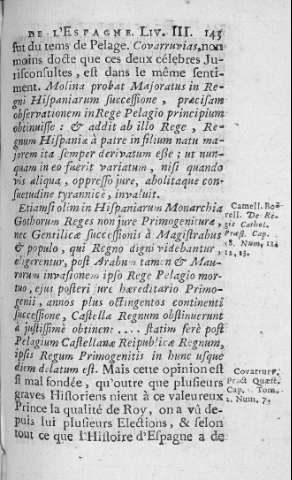 DE L'ESPAGNE. LIV. III. 145
fut du tems de Pelage. Covarruvias, non
moins docte que ces deux célebres Ju-
risconsultes, est dans le même senti-
ment. Molina probat Majoratus in Re-
gni Hispaniarum successione, præcisam
observationem in Rege Pelagio principium
obtinuisse: & addit ab illo Rege, Re-
gnum Hispania à patre in filium natu ma-
jorem ita semper derivatum esse; ut nun-
quam in eo fuerit variatum, nisi quando
vis aliqua, oppresso jure, abolitaque con-
suetudine tyrannicè, invaluit.
Etiamsi olim in Hispaniarum Monarchia
Gothorum Reges non jure Primogenituræ,
nec Gentilicæ successionis à Magistratibus
& populo, qui Regno digni videbantur,
eligerentur, post Arabum tamen & Mau-
rorum invasionem ipso Rege Pelagio mor-
tuo, ejus posteri jure hæreditario Primo-
genii, annos plus octingentos continenti
successione, Castellæ Regnum obstinuerunt
à justissimè obtinent .... statim ferè post
Pelagium Castellanæ Reipublicæ Regnum,
ipsis Regum Primogenitis in hunc usque
diem delatum est. Mais cette opinion est
si mal fondée, qu'outre que plusieurs
graves Historiens nient à ce valeureux
Prince la qualité de Roy, on a vû de-
puis lui plusieurs Elections, & selon
tout ce que l'Histoire d'Espagne a de
Camill. Bo-
rell. De Re-
gis Cathol.
Præst. Cap.
Num,
Covarruv.
Pract Quæst.
Cap. Tom.
2. Num. 7.